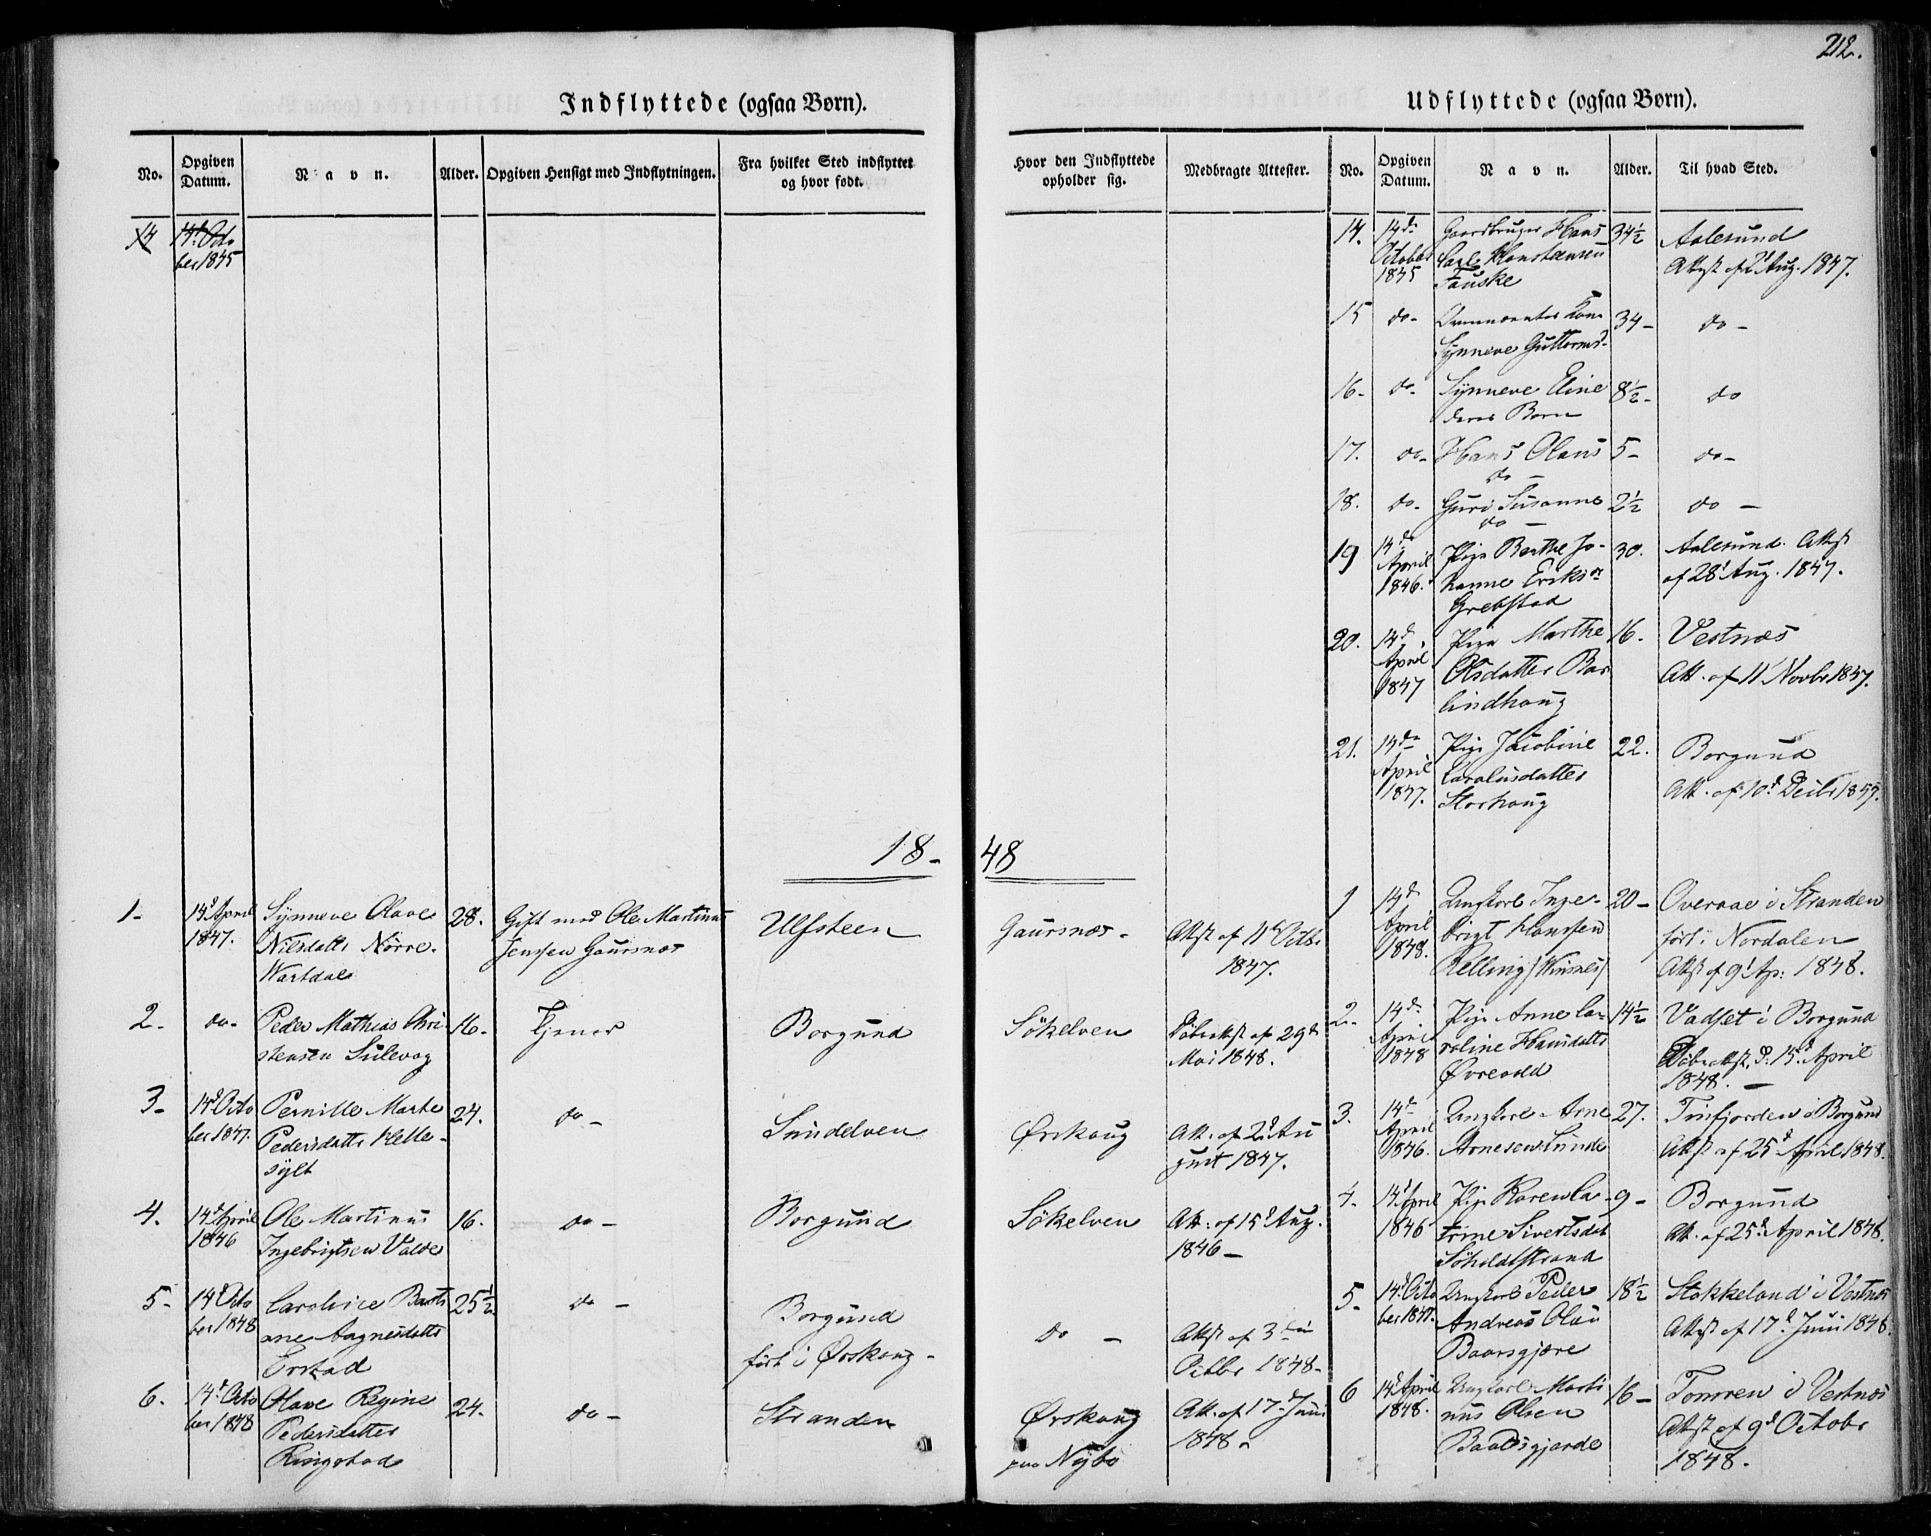 212.
Indflyttede (ogsaa Børn).
No.
Opgiven Datum.
Navn.
Alder.
Opgiven Hensigt med Indflytningen.
Fra hvilket Sted indflyttet og hvor født.
Hvor den Indflyttede opholder sig.
Medbragte Attester.
14
14d Octo
ber 1845
18-48
1-
14d April
1847.
Synneve Olave
Nilsdatter Nørre-
Vartdal
28.
Gift med Ole Martinus
Jenssen Gaursnæs
Ulfsteen
Gaursnæs.
Attst af 11te Octbr
1847.
2-
do-
Peder Mathias Chri-
stensen Sulevog
16-
Tjener
Borgund
Sökelven
Döbeattst af 29de
Mai 1848.
3-
14d Octo
ber 1847.
Pernille Marte
Pedersdatter Helle-
sylt
24.
do-
Sundelven
Ørskoug
Att. af 2d Au
gust 1847.
4.
14d April
1846
Ole Martinus
Ingebrigtsen Valde
16.
do-
Borgund
Sökelven
Att. af 15d Aug.
1846-
5-
14d Octo
ber 1848
Caroline
Aagnesdatter
Erstad
25½
do-
Borgund
født i Ørskoug-
do-
Attst af 3die
Octbr 1848-
6.
14d Octo
ber 1848
Olave Regine
Pedersdatter
Ringstad
24.
do-
Stranden
Ørskoug
paa Nysæ
Att. af 17d Juni
1848-
Udflyttede (ogsaa Børn).
No.
Opgiven Datum.
Navn.
Alder.
Til hvad Sted.
14.
14de
October
1845
Gaardbruger Hans
Carl Hanstensen
Fauske
34½
Aalesund
Attst af 2d Aug. 1847.
15
do-
Kone
Synneve Guttormsd.
34-
do-
16-
do-
Synneve Eline
deres Barn
8½-
do
17.
do-
Hans Olaus
do-
5-
do-
18.
do-
Guri Susanne
do-
2½
do-
19
14de
April
1846.
Pige Berthe Jo-
hanne Eriksdr
Grebstad
30.
Aalesund. Attst
af 28d Aug. 1847.
20.
14d
April
1847
Pige Marthe
Olsdatter Bar
lindhoug
16.
Vestnæs
Att. af 11 Novbr 1847.
21.
14de
April
1847.
Pige Jacobine
Carolusdatter
Storhoug
22.
Borgund
Att. af 10d
1
14d
April
1848.
Ungkarl Inge-
brigt Hanssen
Relling
20-
Overaae i Stranden
født i Nordalen
Attst af 9d Ap: 1848.
2-
14de
April
1848
Pige Anne Ca-
roline Hansdatter
Øvreeeld
14½
Vadset i Borgund
Döbeattst. d: 15d April
1848.-
3.
14de
April
1846.
Ungkarl Arne
Arnesen Lunde
27.
Tusfjorden i Borgund
Attst af 25d April 1848.
4-
14d April
1846
Pige Karen Ca-
trine Sivertsdat
Söholtstrand
9-
Borgund
Att. af 25d April 1848.
5-
14d Octo
ber 1847.
Ungkarl Peder
Andreas Olsen
Baarsgjære
18½
Stokkeland i Vestnæs
Attst af 17d Juni 1848.
6
14d April
1848.
Ungkarl Marti
nus Olsen
Baadsgjærde
16-
Tomren i Vestnæs
Attst af 9d Octobr
1848.